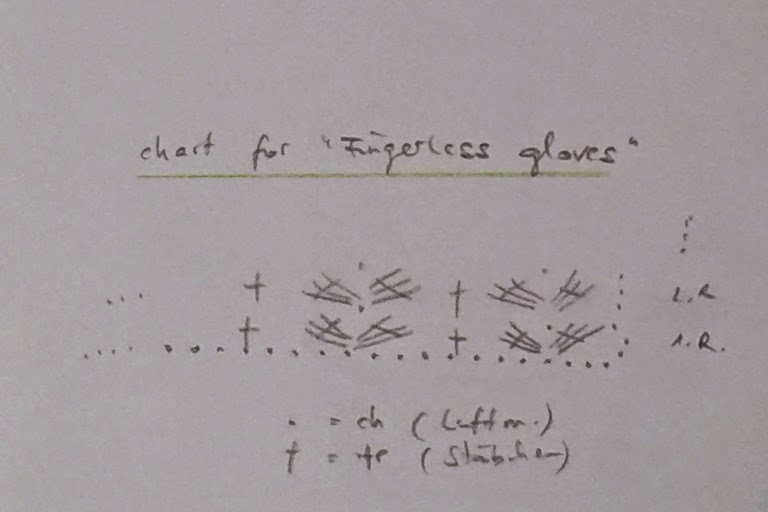 chart for "Fingerless gloves"
2.R
1.R.
. = ch (Luftm.)
† = tr (Stäbchen)